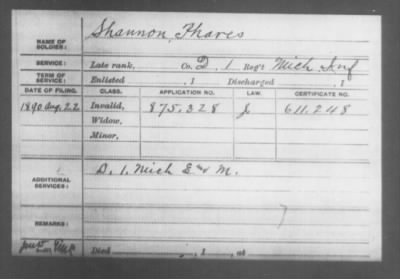 NAME OF SOLDIER: Shannon, Phares
SERVICE: Late rank, Co. D, 1 Reg't Mich Inf
TERM OF SERVICE: Enlisted , 1 Discharged , 1
DATE OF FILING. CLASS. APPLICATION NO. LAW. CERTIFICATE NO.
1890 Aug. 22 Invalid, 875.328 J. 611.248
Widow,
Minor,
ADDITIONAL SERVICES: D. 1. Mich E and M.
REMARKS:
Died , 1 , at